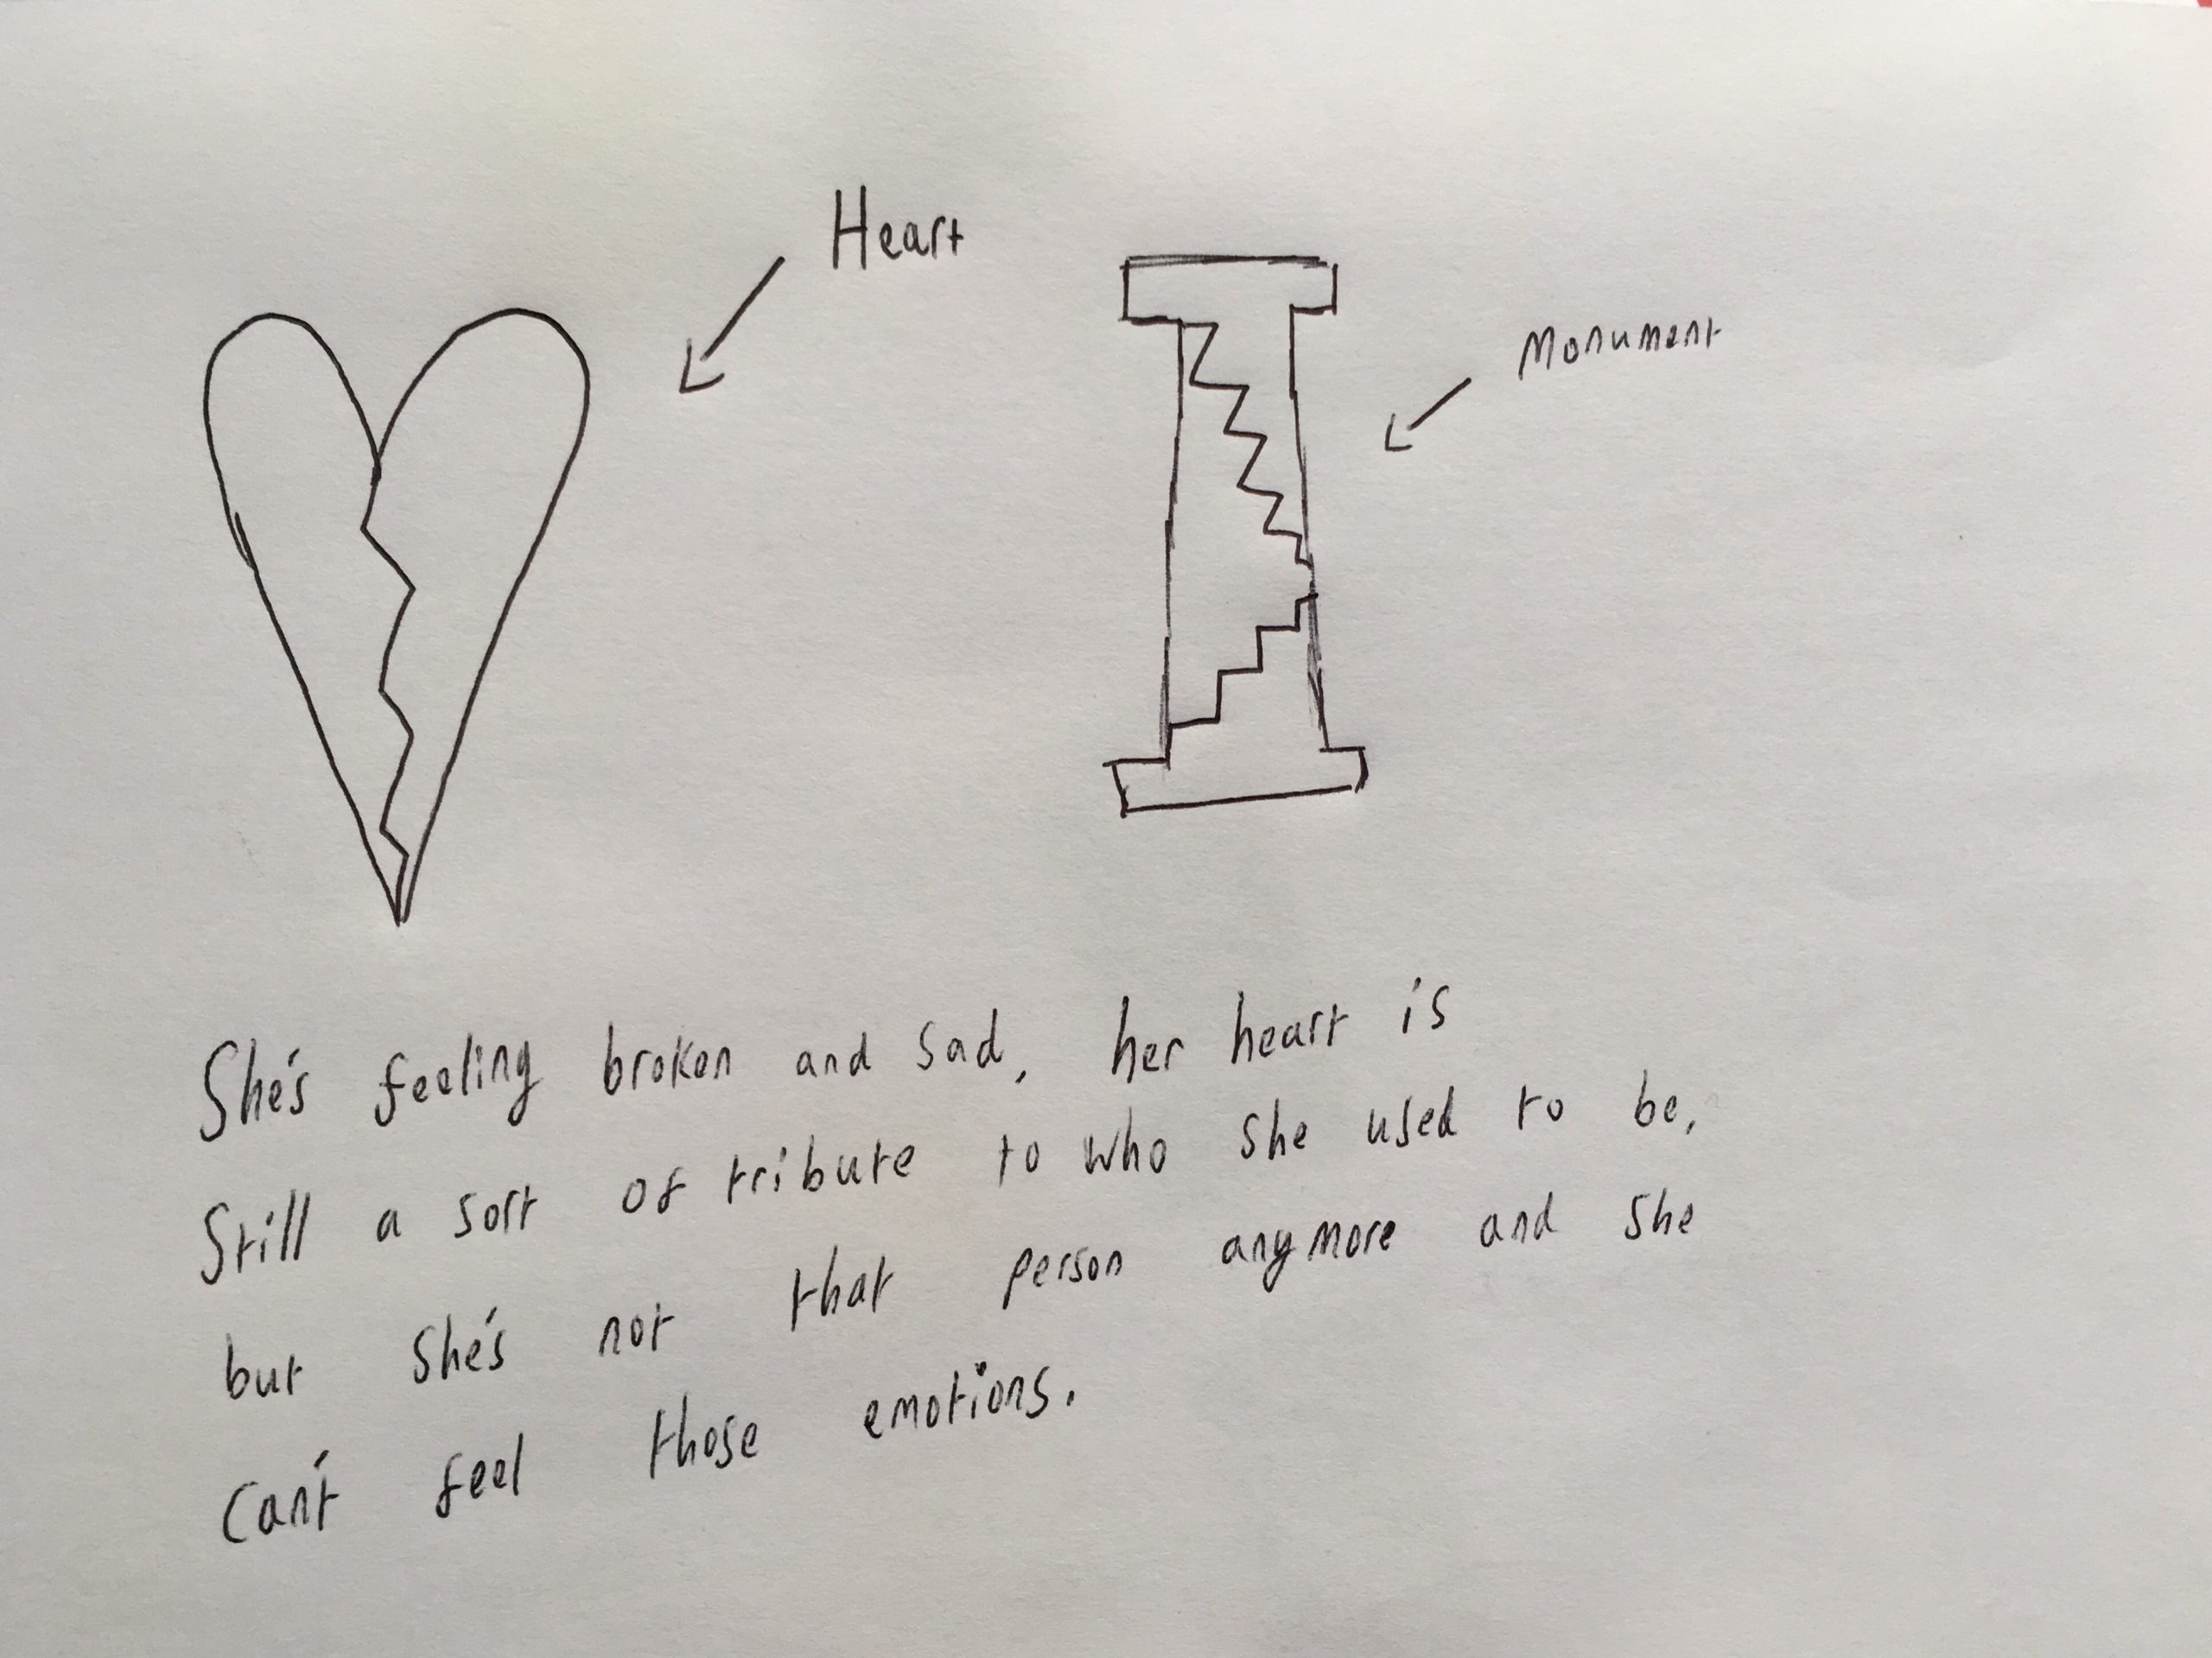 Heart
Monument
She's feeling broken and sad, her heart is
Still a sort of tribute to who she used to be,
but she's not that person anymore and she
can't feel those emotions.